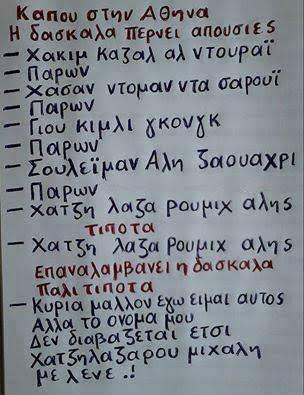 Καπου στην Αθηνα
Η δασκαλα περνει απουσιες
– Χακιμ Καζαλ αλ ντουραϊ
– Παρων
– Χασαν ντομαν ντα σαρουϊ
– Παρων
– Γιου κιμλι γκονγκ
– Παρων
– Σουλεϊμαν Αλη ζαουαχρι
– Παρων
– Χατζη λαζα ρουμιχ αλης
τιποτα
– Χατζη λαζα Ρουμιχ αλης
Επαναλαμβανει η δασκαλα
Παλι τιποτα
– Κυρια μαλλον εγω ειμαι αυτος
Αλλα το ονομα μου
Δεν διαβαζεται ετσι
Χατζηλαζαρου μιχαλη
με λενε .!